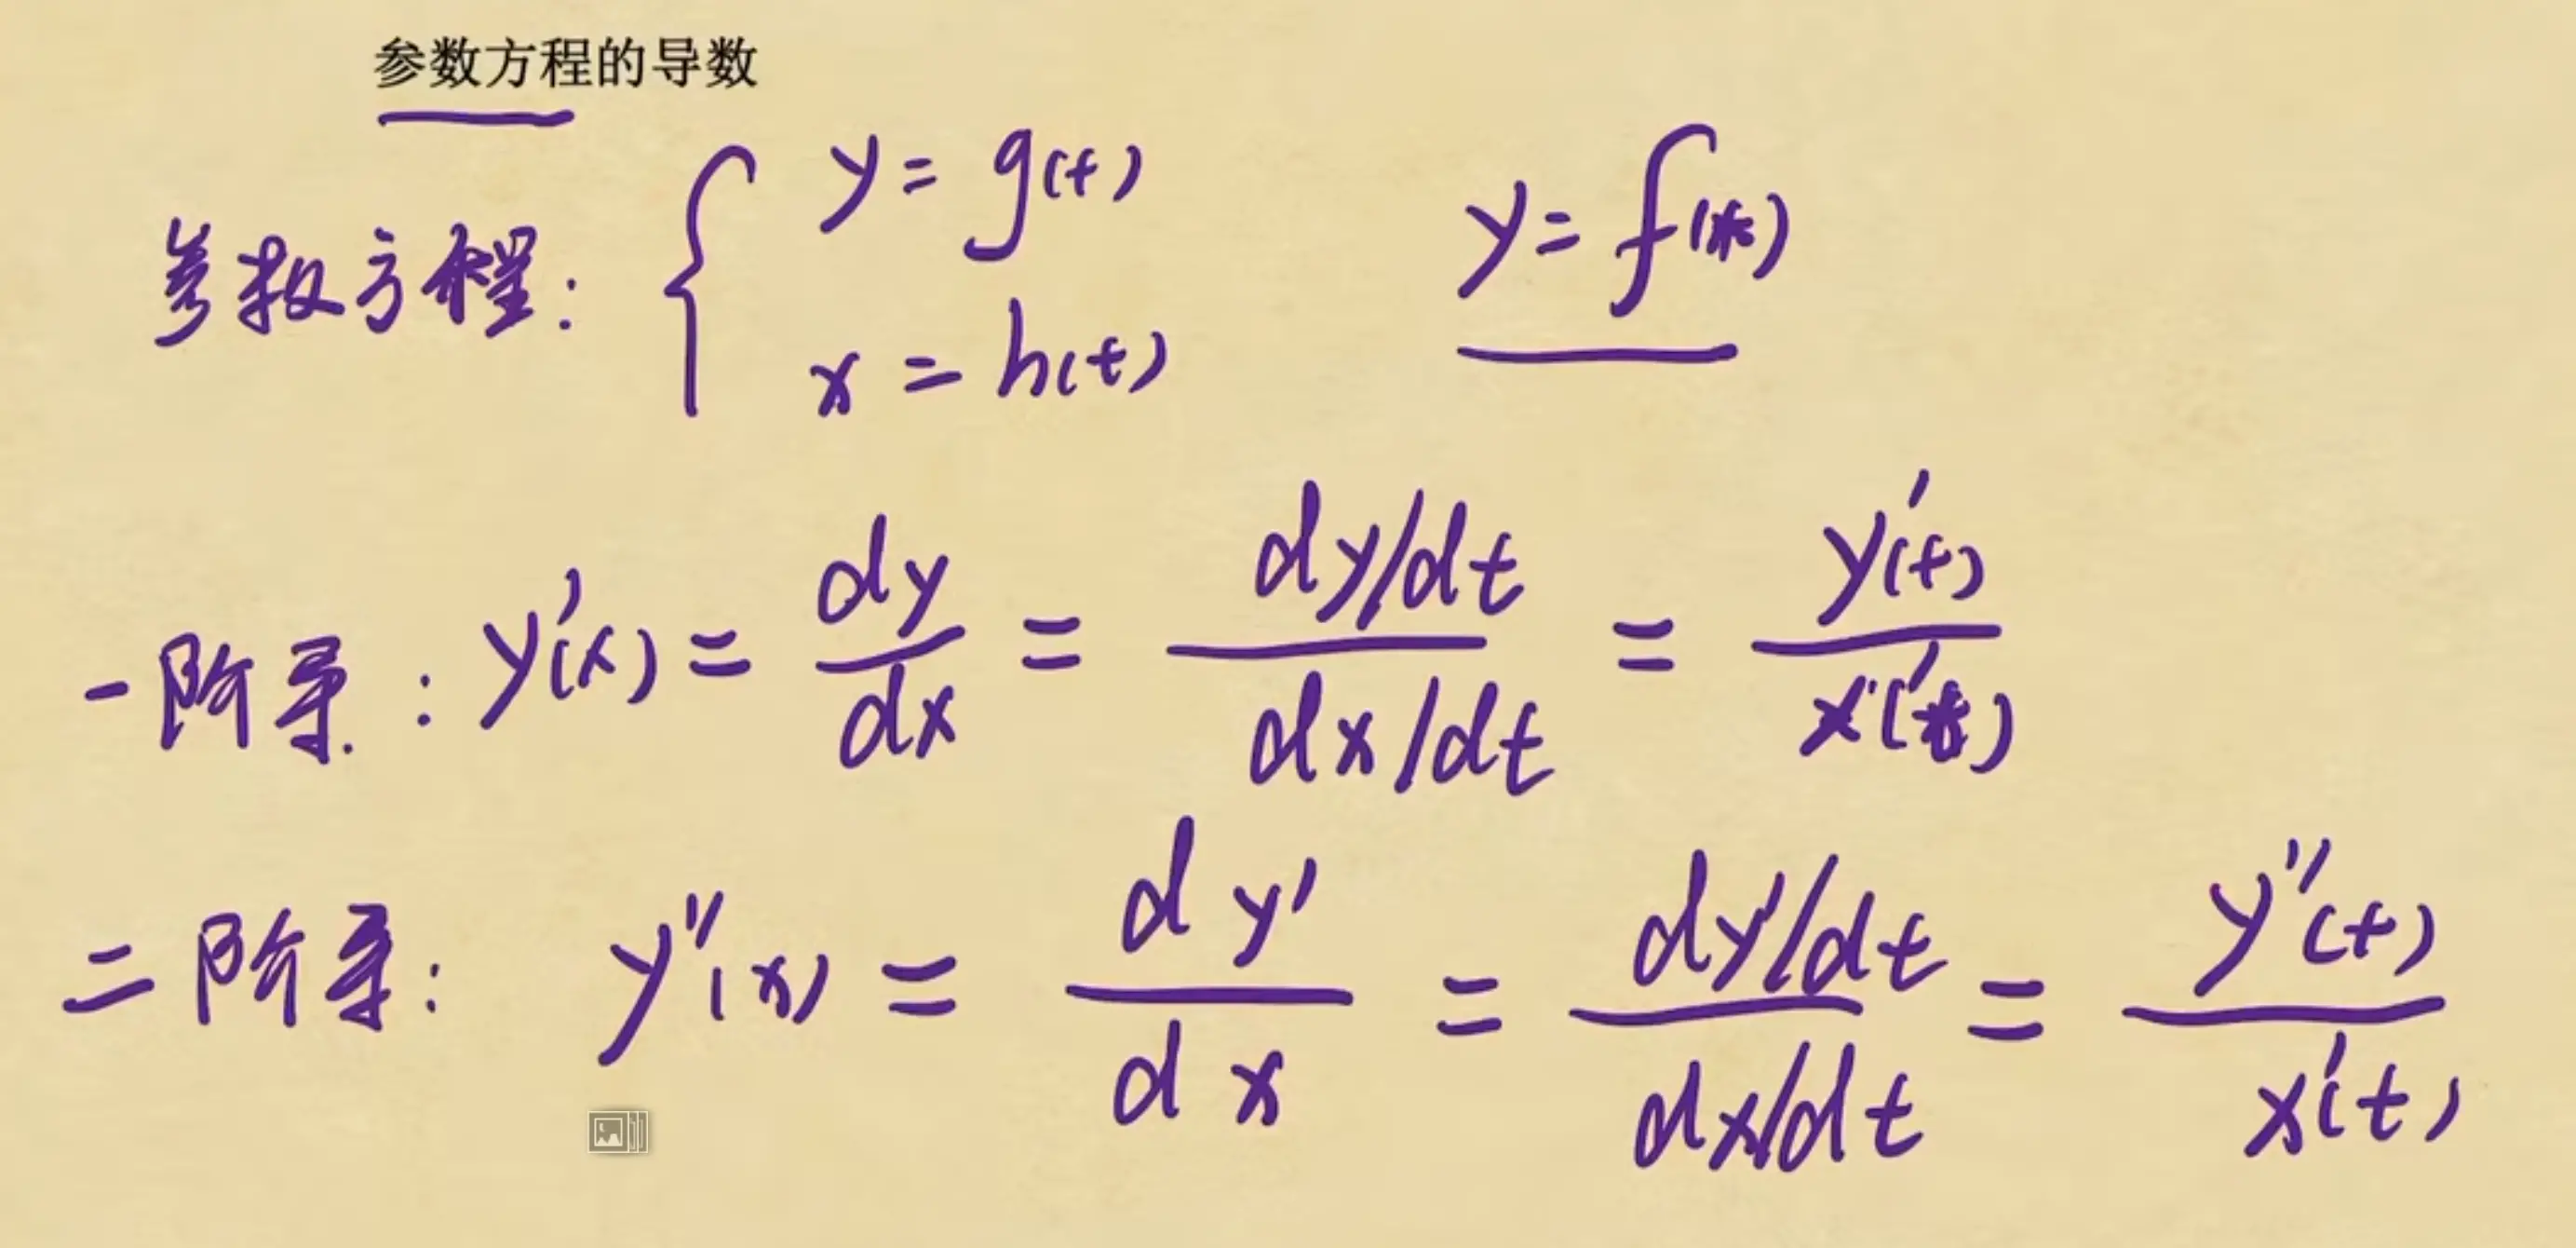 参数方程的导数
参数方程: { y = g(t)
x = h(t)
y = f(x)
一阶导: y'(x) = dy/dx = (dy/dt)/(dx/dt) = y'(t)/x'(t)
二阶导: y''(x) = dy'/dx = (dy'/dt)/(dx/dt) = y''(t)/x'(t)